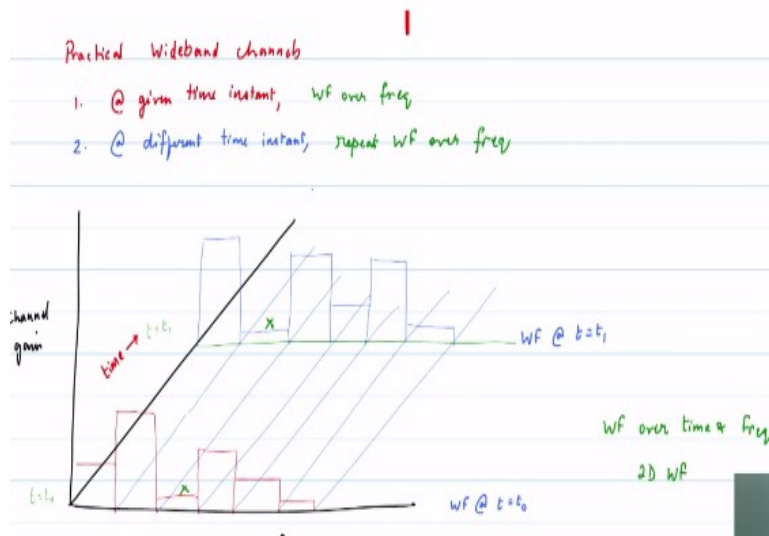 Practical Wideband channels
1. @ given time instant, WF over freq
2. @ different time instant, repeat WF over freq
channel
gain
time →
t=t₁
x
WF @ t=t₁
x
t=t₀
WF @ t=t₀
WF over time & freq
2D WF